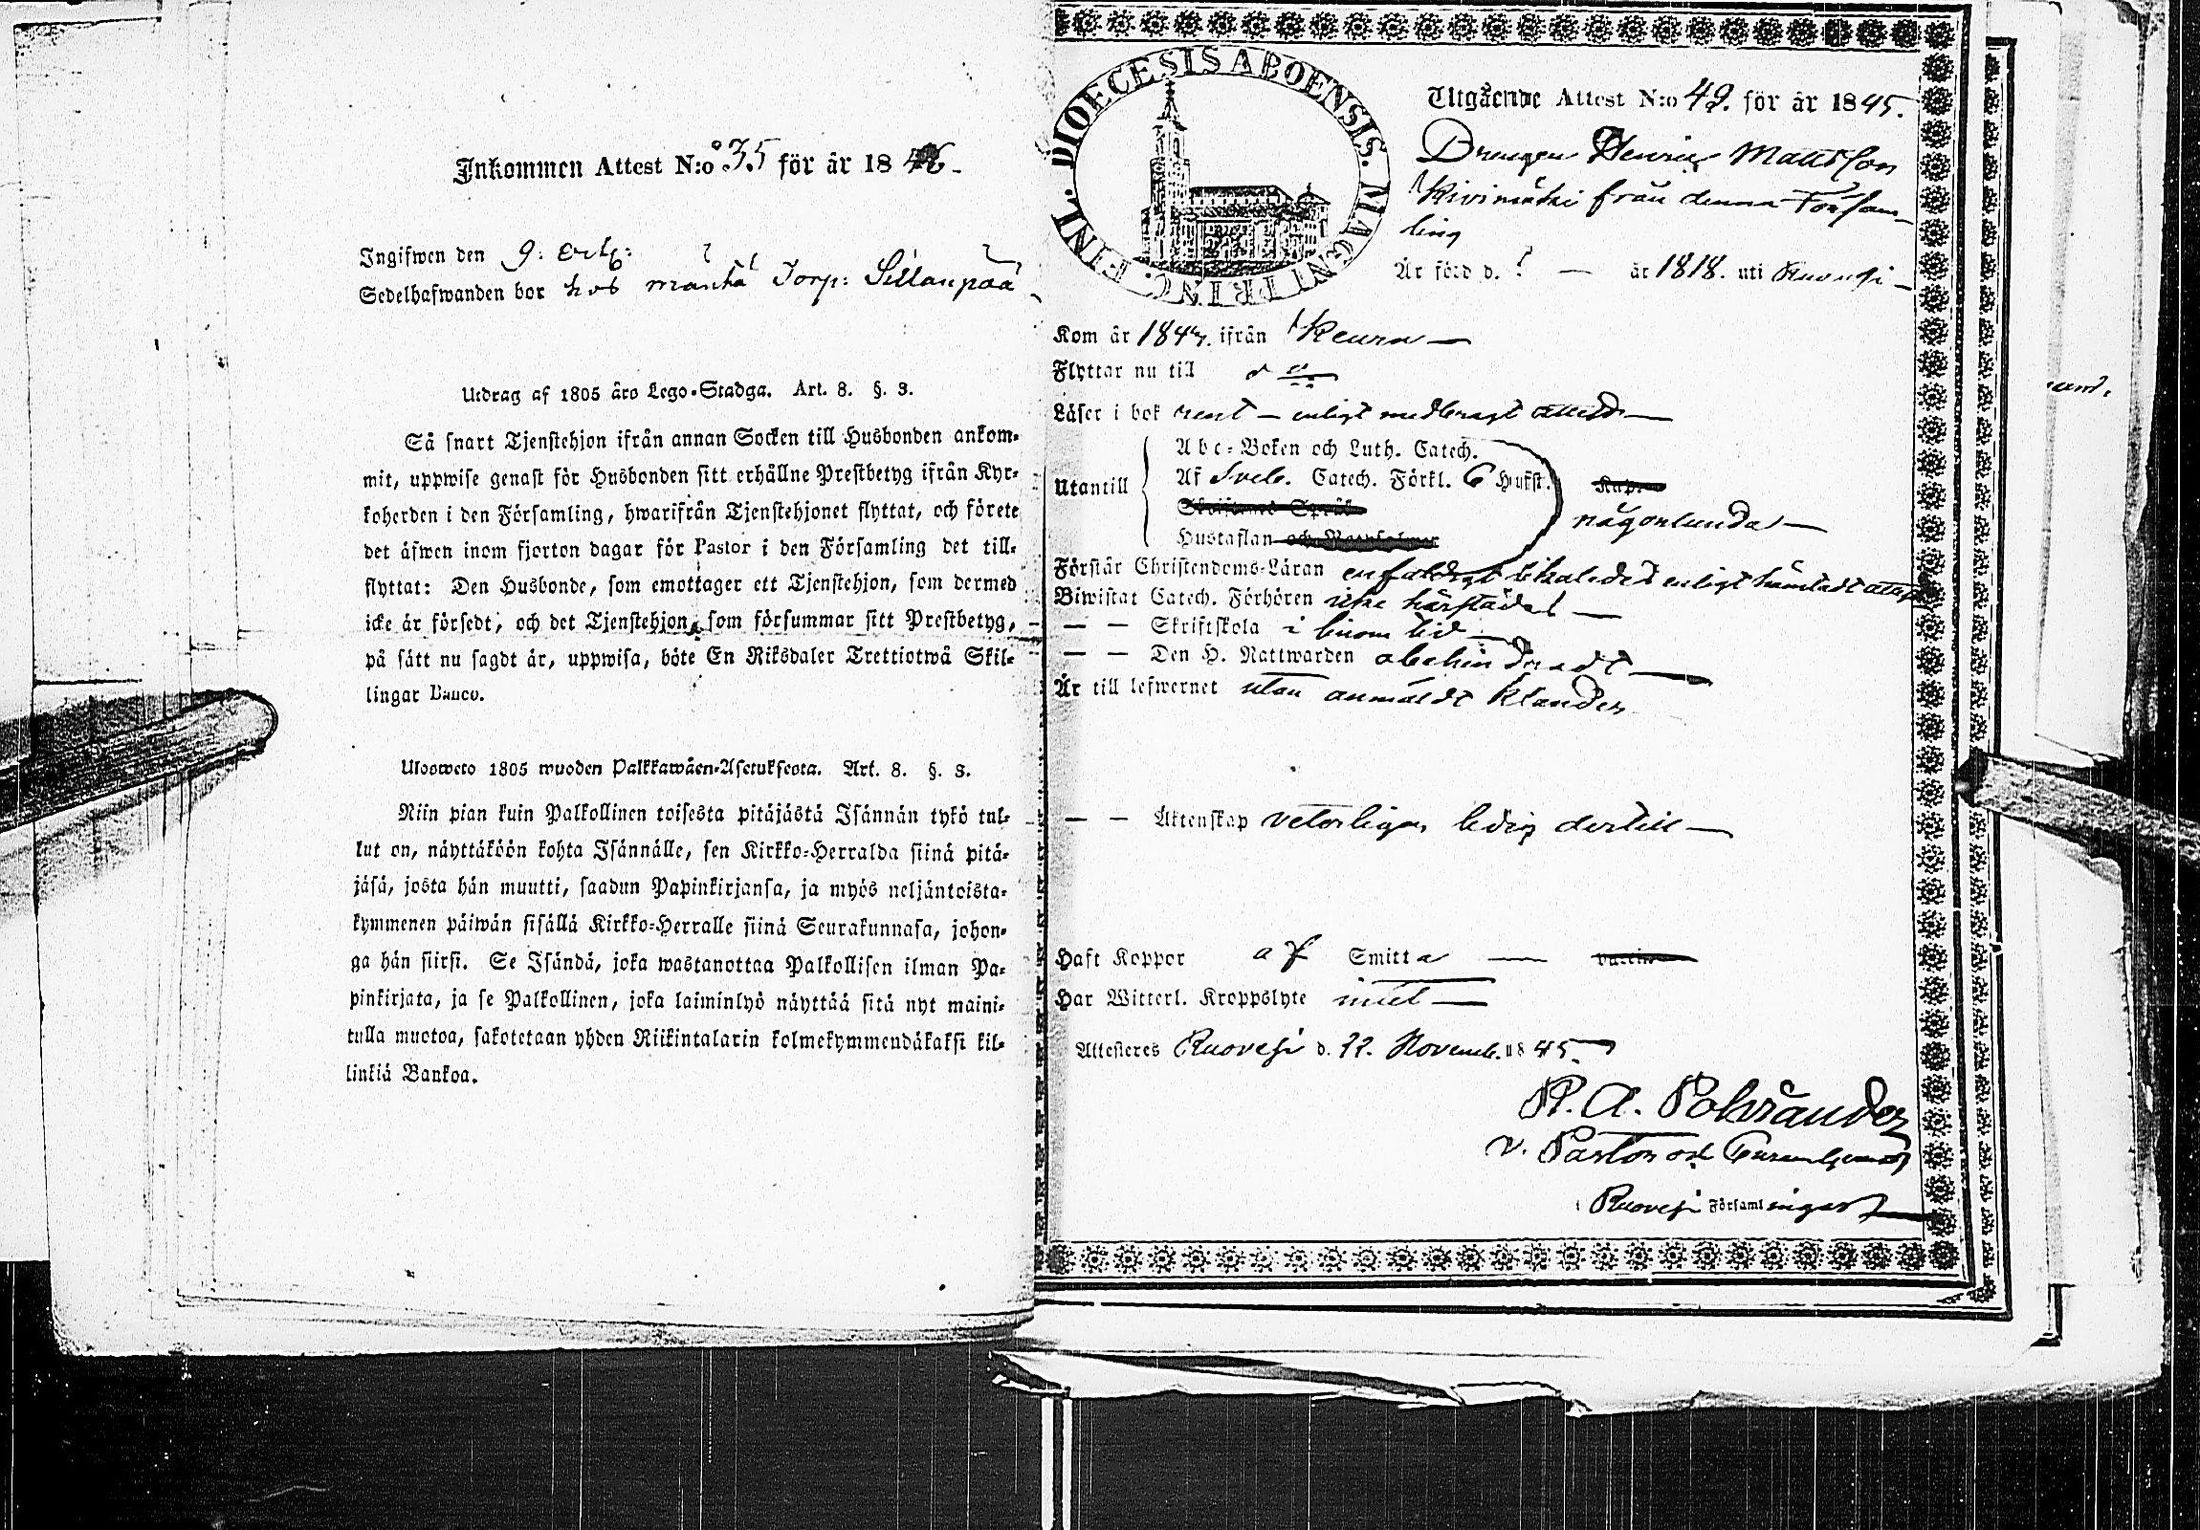 Inkommen Attest N:o 35 för år 1846.
Ingifwen den 9. Octb:
Sedelhafwanden bor hos Torp: Sillanpää
Utdrag af 1805 års Lego-Stadga. Art. 8. §. 3.
Så snart Tjenstehjon ifrån annan Socken till Husbonden ankom-
mit, uppwise genast för Husbonden sitt erhållne Prestbetyg ifrån Kyr-
koherden i den Församling, hwarifrån Tjenstehjonet flyttat, och förete
det äfwen inom fjorton dagar för Pastor i den Församling det till-
flyttat: Den Husbonde, som emottager ett Tjenstehjon, som dermed
icke är försedt, och det Tjenstehjon, som försummar sitt Prestbetyg,
på sätt nu sagdt är, uppwisa, böte En Riksdaler Trettiotwå Skil-
lingar Banco.
Ulosweto 1805 wuoden Palkkawäen-Asetuksesta. Art. 8. §. 3.
Niin pian kuin Palkollinen toisesta pitäjästä Isännän tykö tul-
lut on, näyttäköön kohta Isännälle, sen Kirkko-Herralda siinä pitä-
jäsä, josta hän muutti, saadun Papinkirjansa, ja myös neljäntoista-
kymmenen päiwän sisällä Kirkko-Herralle siinä Seurakunnasa, johon-
ga hän siirsi. Se Isändä, joka wastanottaa Palkollisen ilman Pa-
pinkirjata, ja se Palkollinen, joka laiminlyö näyttää sitä nyt maini-
tulla muotoa, sakotetaan yhden Riikintalarin kolmekymmendäkaksi kil-
linkiä Bankoa.
FINL. DIOECESIS ABOENSIS. MAGNI PRINC.
Utgående Attest N:o 49. för år 1845.
Drengen Henric Mattsson
Kivimäki från denna Församling
ling
Är född d. ? — år 1818. uti Ruovesi
Kom år 184 ifrån Keuru
Flyttar nu till
Läser i bok rent — enligt medbragt attest
Abc-Boken och Luth. Catech.
Utantill Af Sveb. Catech. Förkl. 6 Hufst.
någorlunda
Hustaflan
Förstår Christendoms-Läran enfaldigt enligt attest
Biwistat Catech. Förhören icke härstädes
— — Skriftskola i sinom tid
— — Den H. Nattwarden obehindradt
Är till lefwernet utan anmäldt klander
— — Äktenskap veterligen ledig dertill
Haft Koppor af Smitta
Har Witterl. Kroppslyte intet
Attesteres Ruovesi d. 22. Novemb. 1845.
R. A. Polviander
v. Pastor
i Ruovesi Församlingar